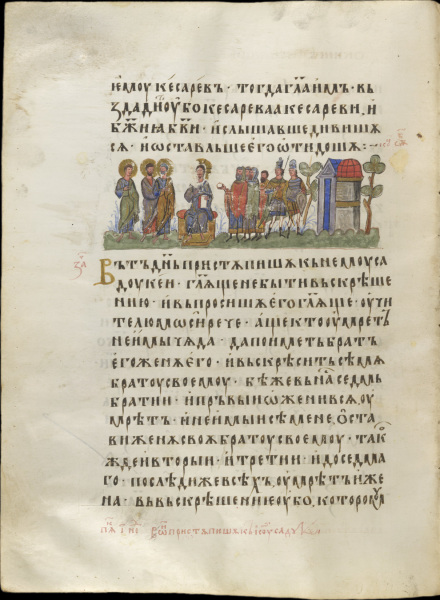 ємоу кесаревъ · тогда гл҃а имъ · въ
здадите оубо кесарева кесареви · и
бж҃иꙗ б҃ви · и слышавше дивишѧ
сѧ · и ѡставльше его ѿидошѧ :–
за
Въ тъ дн҃ь пристѫпишѫ къ немоу са
доукеи · гл҃ѧще не быти въскрѣше
нию · и въпросишѫ его гл҃ѧще · оучи
телю мѡѵси рече · аще кто оумретъ
не имы чѧда · да поиметъ братъ
его женѫ его · и въскрѣситъ сѣмѧ
братоу своемоу · бѣ же въ насъ седмь
братии · и пръвыи ѡженивсѧ оу
мрѣтъ · и не имыи сѣмене ѡста
ви женѫ своѧ братоу своемоу · тако
ждеи въторыи · и третии · и до седма
го · послѣди же всѣхъ оумрѣтъ и же
на · въ въскрѣшение оубо котороум
пристѫпишѫ къ іс҃оу садук